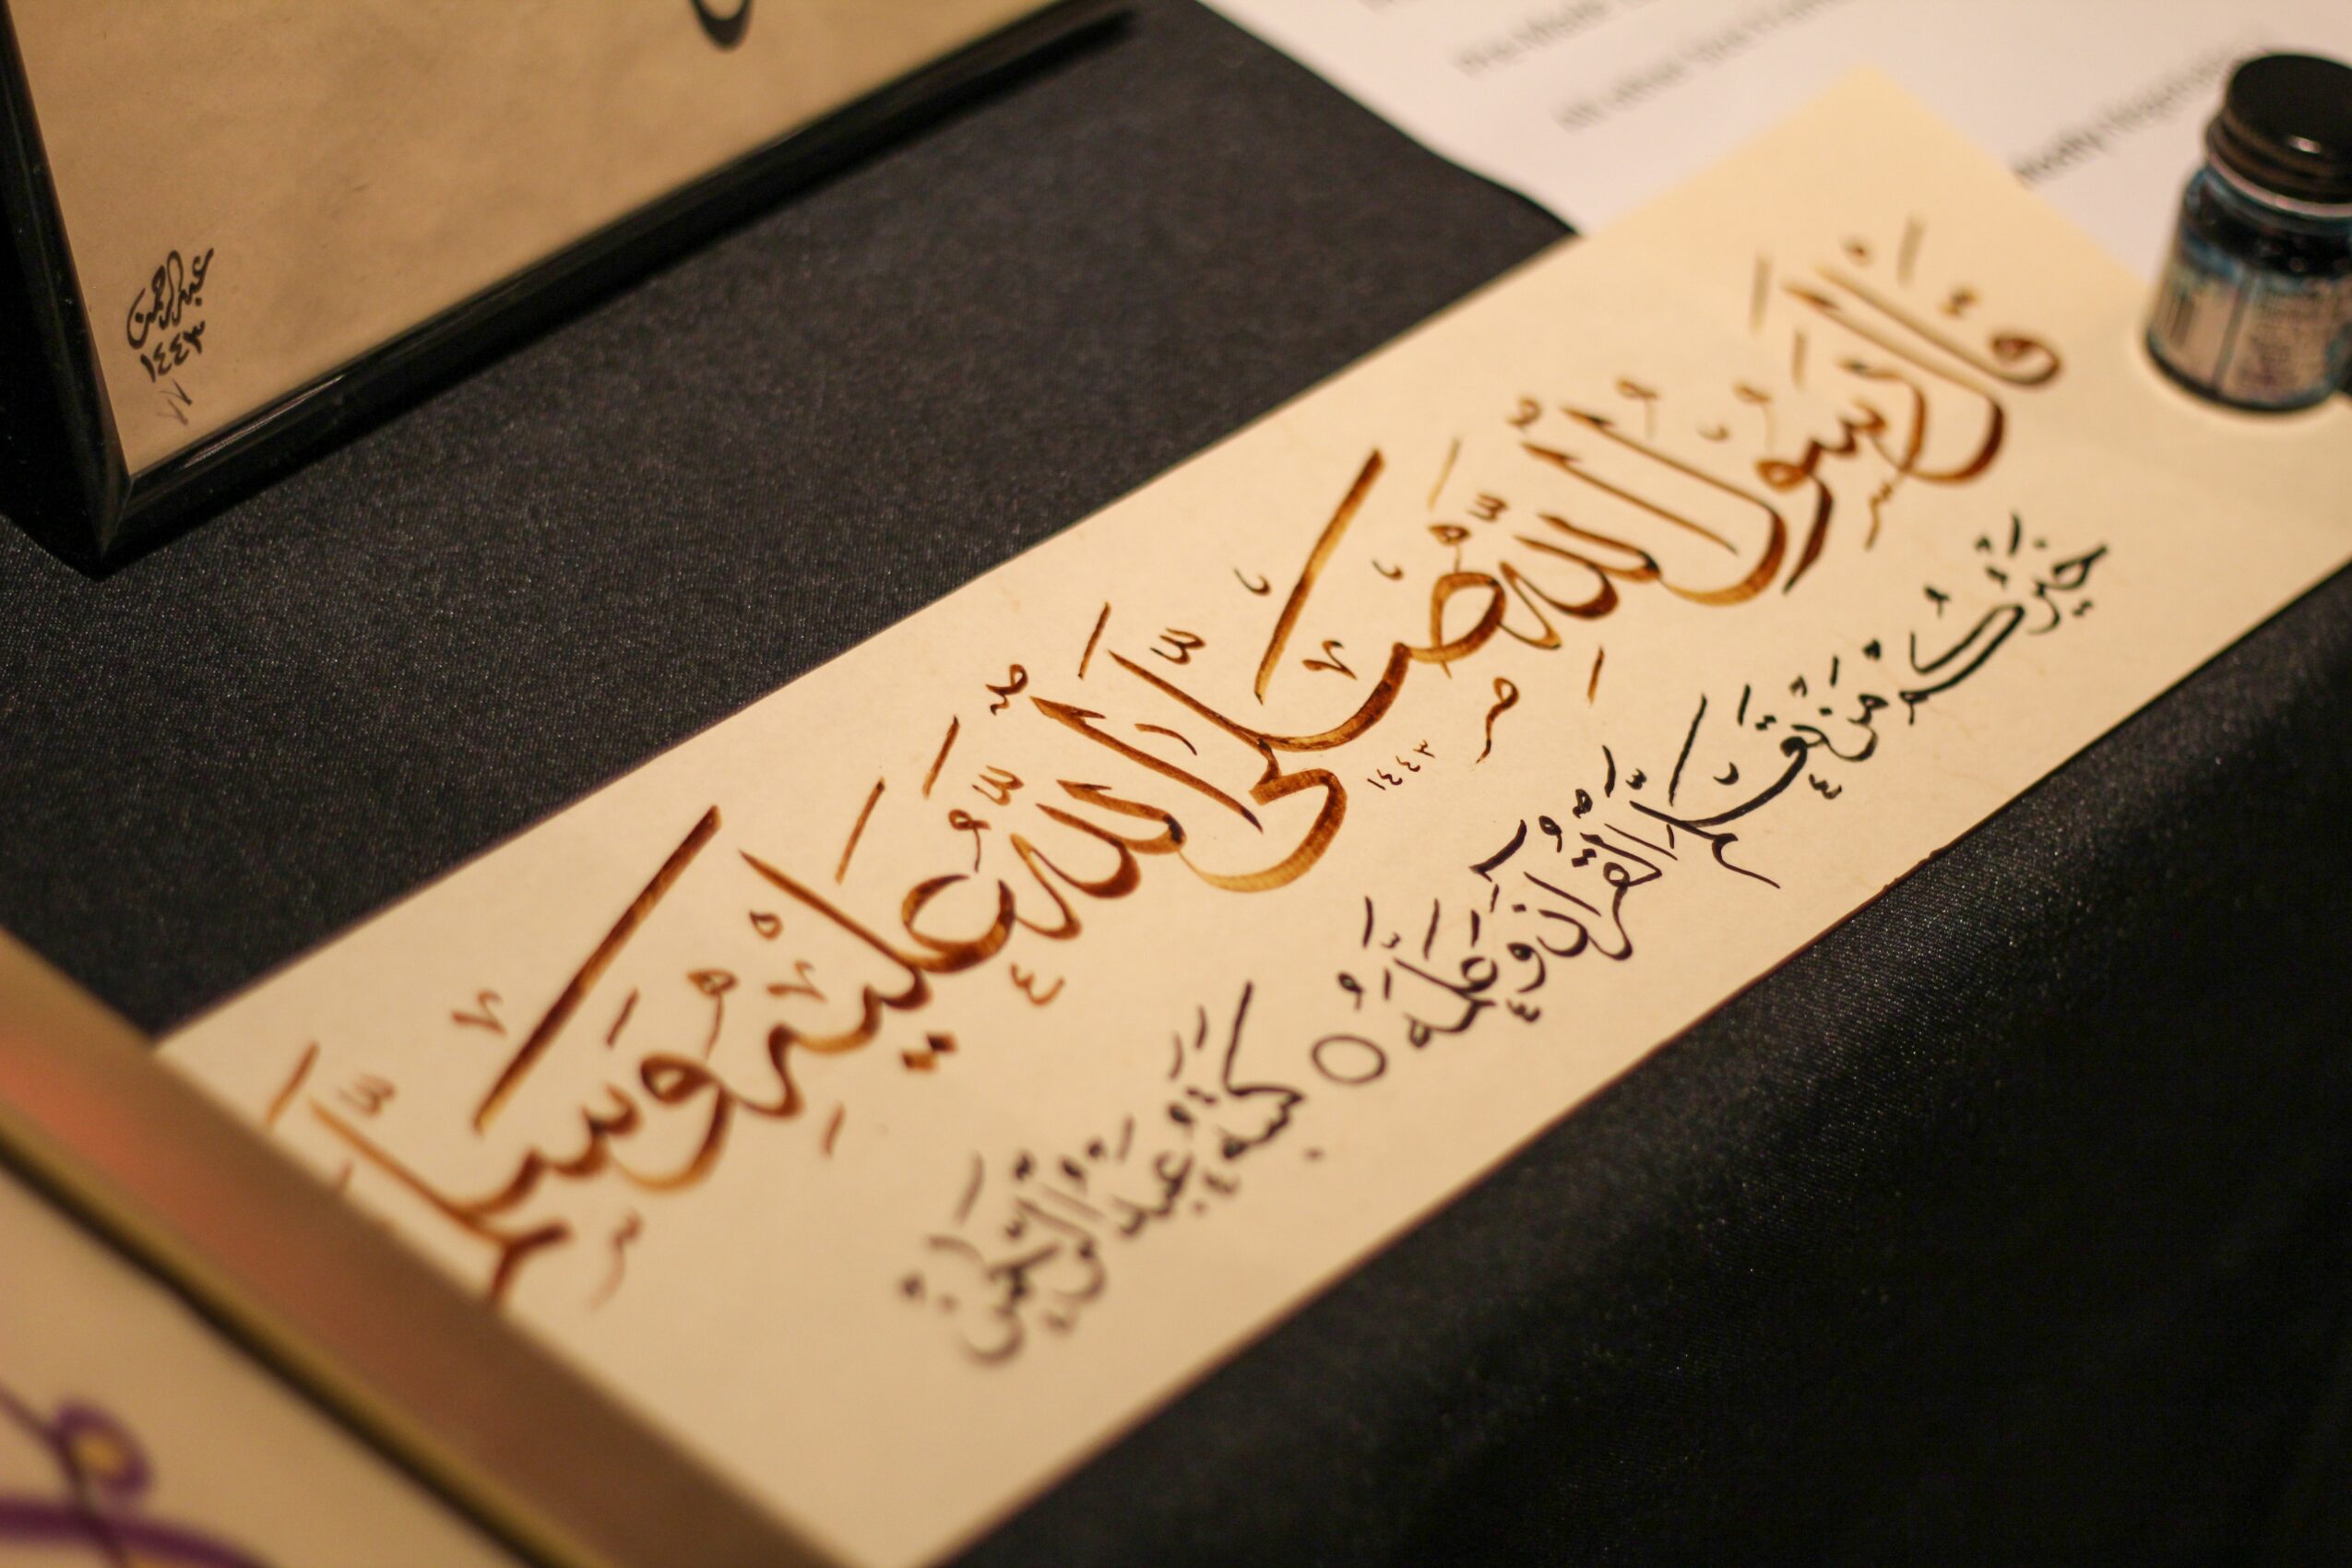 عبد الرحمن
١٤٤٣
قَالَ رَسُولُ اللَّهِ صَلَّى اللَّهُ عَلَيْهِ وَسَلَّمَ
١٤٤٣
خَيْرُكُمْ مَنْ تَعَلَّمَ الْقُرْآنَ وَعَلَّمَهُ ۝ كَتَبَهُ عَبْدُ الرَّحْمَنِ